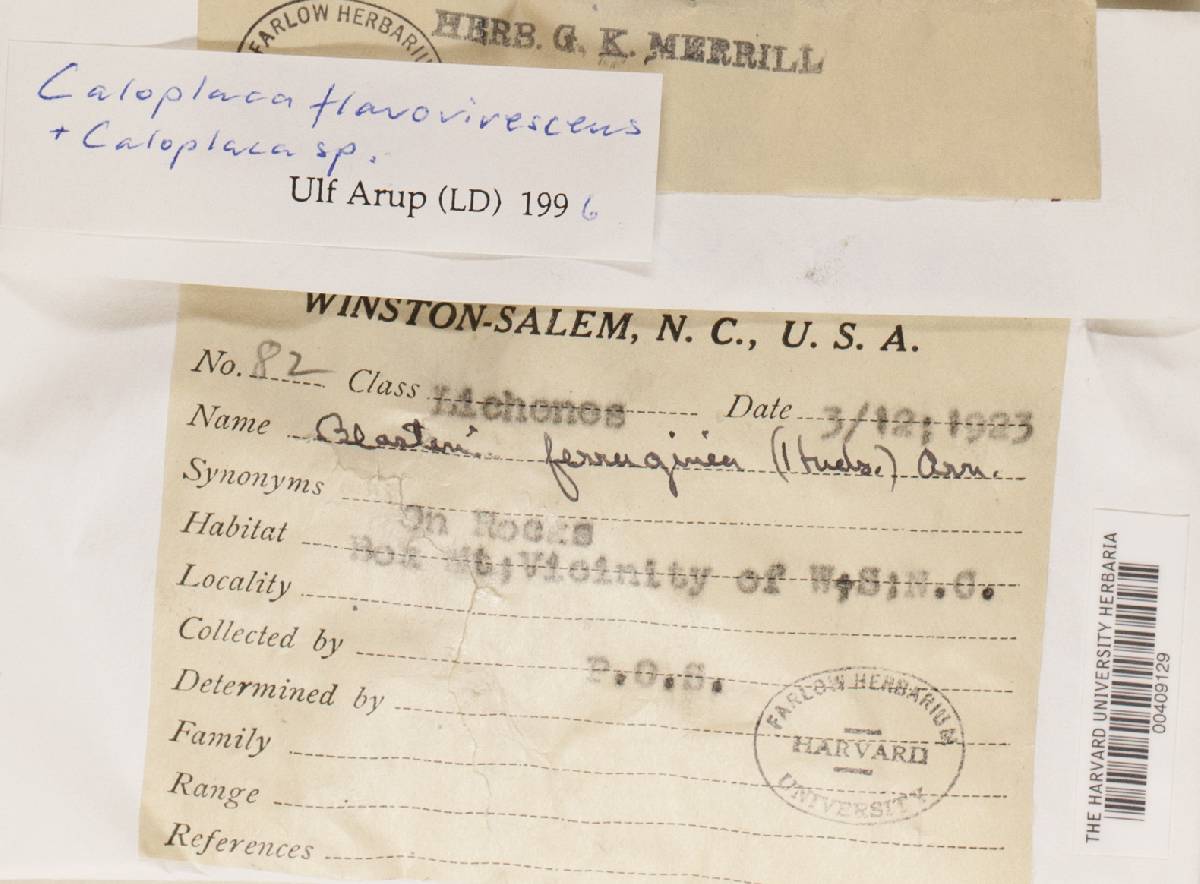 FARLOW HERBARIU
HERB. G. K. MERRILL
Caloplaca flavovirescens
+ Caloplaca sp.
Ulf Arup (LD) 1996
WINSTON-SALEM, N. C., U. S. A.
No. 82 Class Lichenes Date 3/12;1923
Name Blasteni. ferruginea (Huds.) Arn.
Synonyms
Habitat On Rocks
Locality Bot Mt;Vicinity of W;S;N.C.
Collected by P.O.S.
Determined by
Family
Range
References
FARLOW HERBARIUM
HARVARD
UNIVERSITY
THE HARVARD UNIVERSITY HERBARIA
00409129